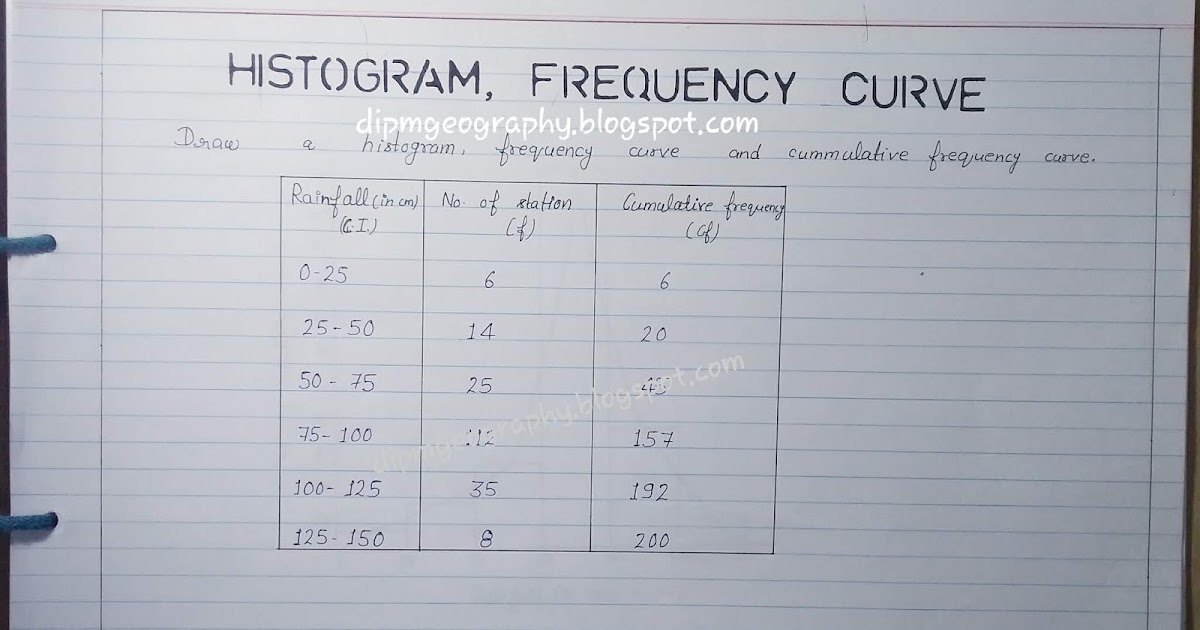 HISTOGRAM, FREQUENCY CURVE
dipmgeography.blogspot.com
Draw a histogram, frequency curve and cummulative frequency curve.
Rainfall (in cm) No. of station Cumulative frequency
(C.I.) (f) (cf)
0-25 6 6
25-50 14 20
50-75 25
75-100 112 157
100-125 35 192
125-150 8 200
dipmgeography.blogspot.com